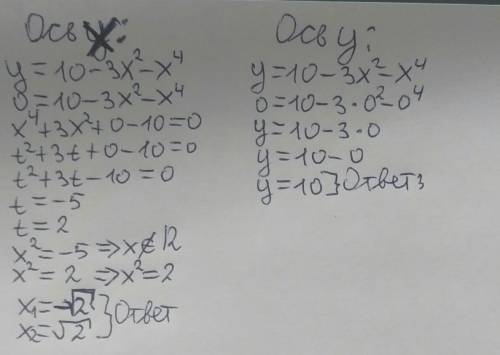 Ось x:
y = 10 - 3x² - x⁴
0 = 10 - 3x² - x⁴
x⁴ + 3x² + 0 - 10 = 0
t² + 3t + 0 - 10 = 0
t² + 3t - 10 = 0
t = -5
t = 2
x² = -5 => x ∉ R
x² = 2 => x² = 2
x₁ = -√2 } Ответ
x₂ = √2
Ось y:
y = 10 - 3x² - x⁴
0 = 10 - 3·0² - 0⁴
y = 10 - 3·0
y = 10 - 0
y = 10 } Ответ